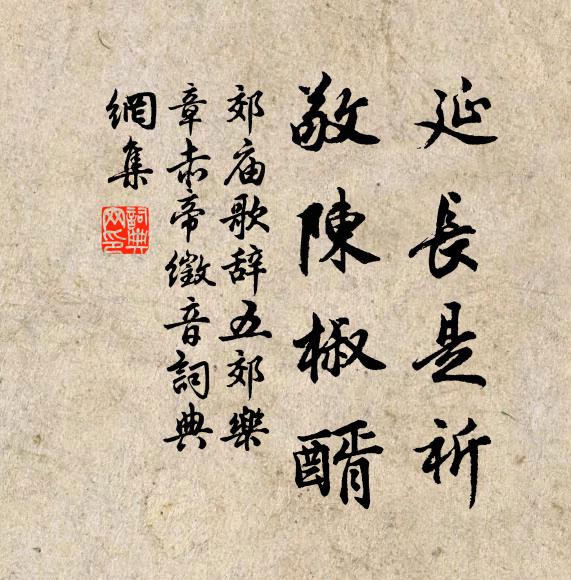 延長是祈
敬陳椒醑
郊庙歌辞五郊樂
章赤帝徵音詞典
網集
詞典
网印